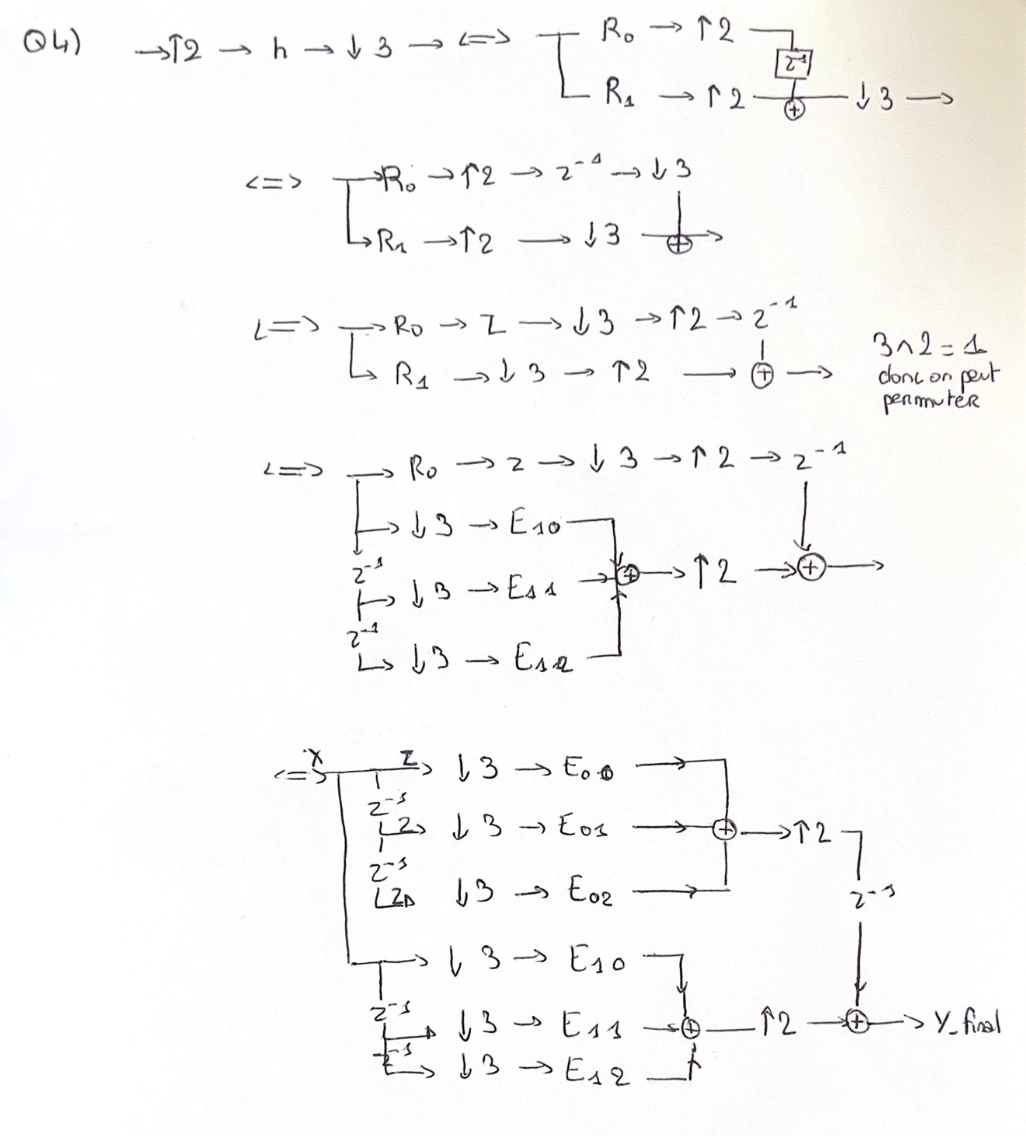 Q4) →↑2 → h → ↓ 3 → <=> R₀ → ↑2
z⁻¹
R₁ → ↑2 ⊕ ↓3 →
<=> →R₀ →↑2 → z⁻¹ → ↓3
→R₁ →↑2 → ↓3 ⊕→
<=> → R₀ → Z → ↓3 → ↑2 → z⁻¹
R₁ → ↓3 → ↑2 → ⊕ →
3∧2 = 1
donc on peut
permuter
<=> → R₀ → z → ↓3 → ↑2 → z⁻¹
→ ↓3 → E₁₀
z⁻¹
→ ↓3 → E₁₁ → ⊕ → ↑2 → ⊕ →
z⁻¹
→ ↓3 → E₁₂
<=> X Z → ↓3 → E₀₀ →
z⁻¹
Z → ↓3 → E₀₁ → ⊕ → ↑2
z⁻¹
Z ↓3 → E₀₂ →
z⁻¹
→ ↓3 → E₁₀
z⁻¹
→ ↓3 → E₁₁ → ⊕ ↑2 → ⊕ → Y_final
z⁻¹
→ ↓3 → E₁₂